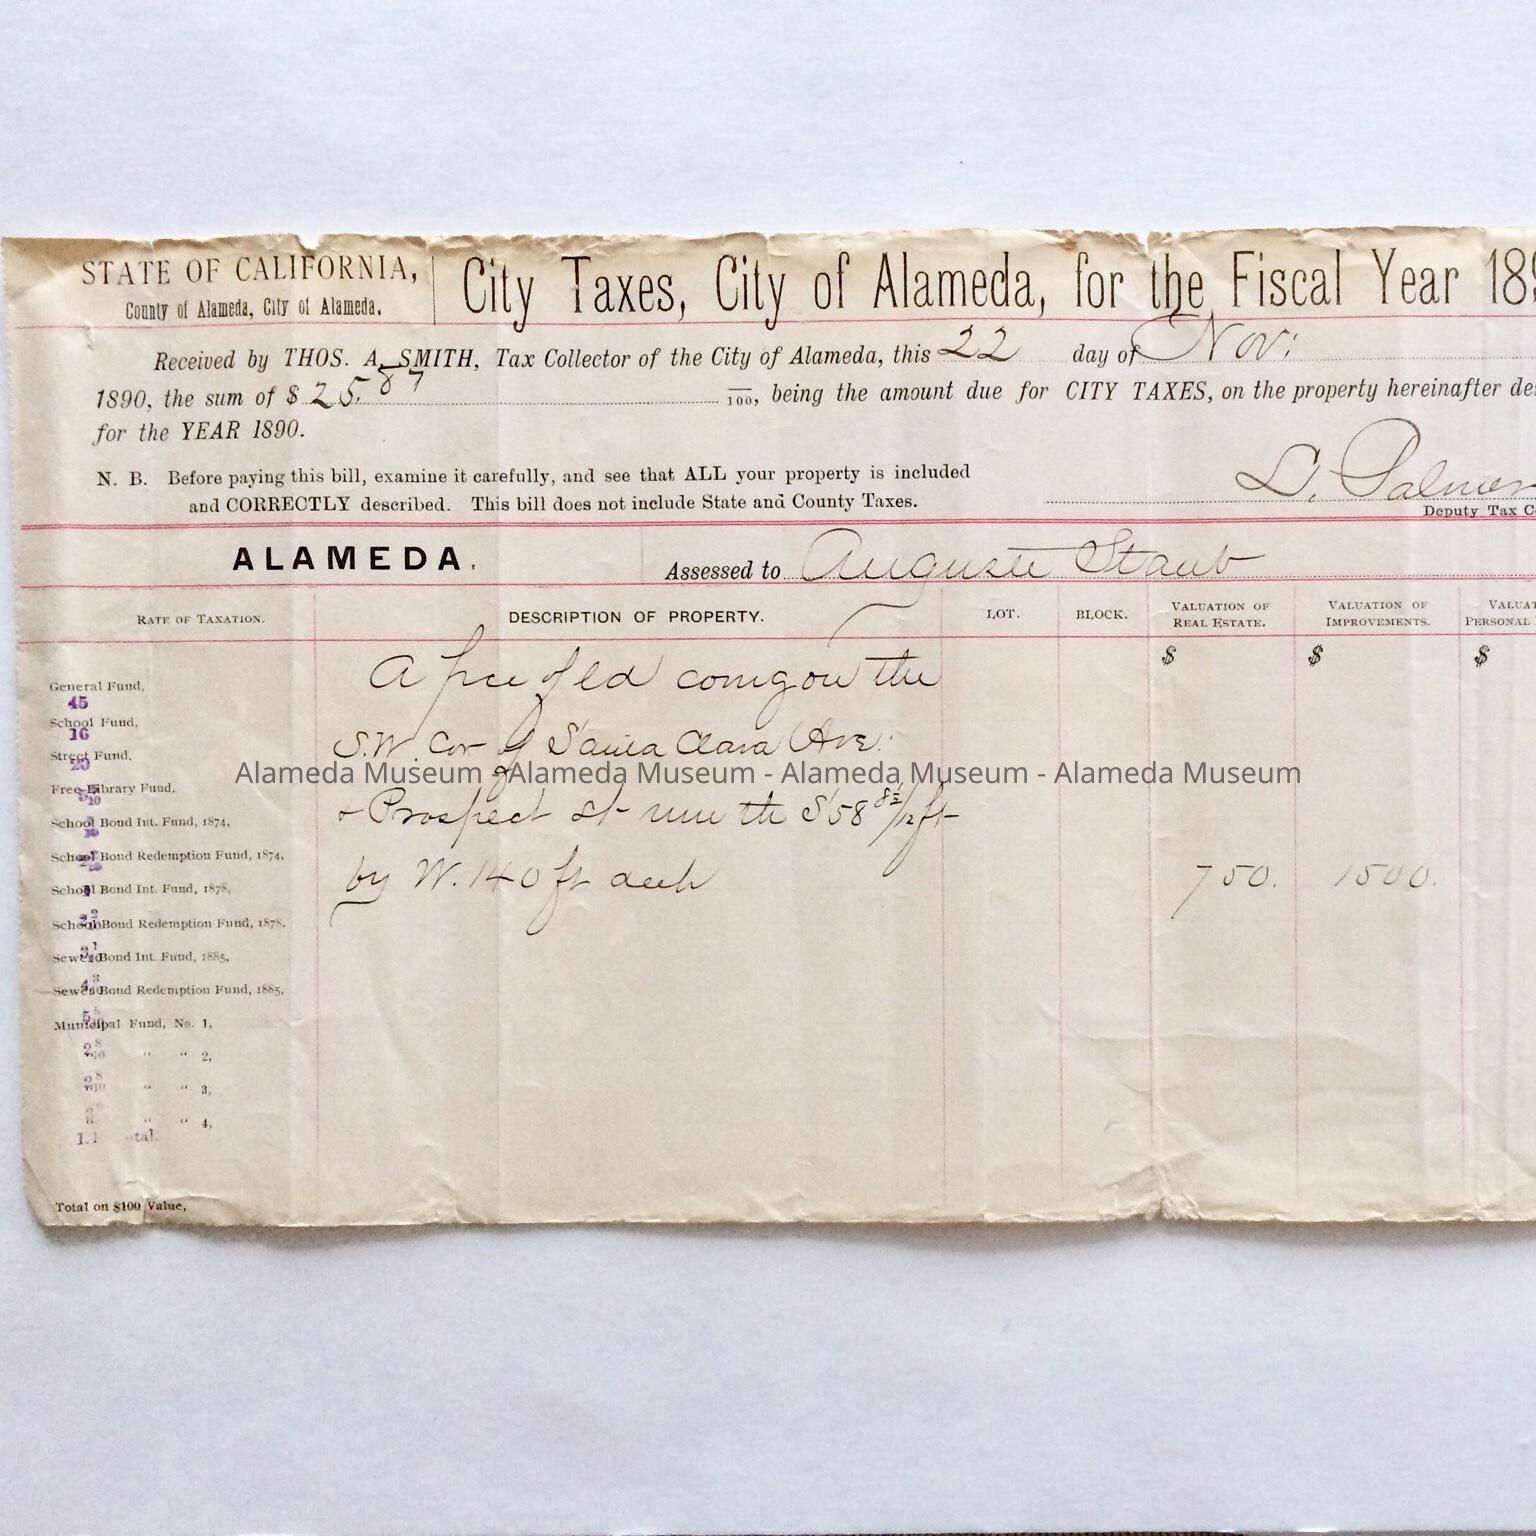 STATE OF CALIFORNIA,
County of Alameda, City of Alameda.
City Taxes, City of Alameda, for the Fiscal Year 189
Received by THOS. A. SMITH, Tax Collector of the City of Alameda, this 22 day of Nov:
1890, the sum of $ 25.87 /100, being the amount due for CITY TAXES, on the property hereinafter des
for the YEAR 1890.
N. B. Before paying this bill, examine it carefully, and see that ALL your property is included
and CORRECTLY described. This bill does not include State and County Taxes.
Palmer
Deputy Tax Co
ALAMEDA.
Assessed to Auguste Staub
RATE OF TAXATION.
DESCRIPTION OF PROPERTY.
LOT.
BLOCK.
VALUATION OF REAL ESTATE.
VALUATION OF IMPROVEMENTS.
VALUAT
PERSONAL
$ $ $
A pce of ld comg on the
S.W. Cor of Santa Clara Ave.
Alameda Museum - Alameda Museum - Alameda Museum - Alameda Museum
& Prospect St run th S 58 /12 ft
by W. 140 ft deep
750. 1500.
General Fund,
45
School Fund,
16
Street Fund,
20
Free Library Fund,
School Bond Int. Fund, 1874,
School Bond Redemption Fund, 1874,
School Bond Int. Fund, 1878,
School Bond Redemption Fund, 1878,
Sewer Bond Int. Fund, 1885,
Sewer Bond Redemption Fund, 1885,
Municipal Fund, No. 1,
" " 2,
" " 3,
" " 4,
Total on $100 Value,